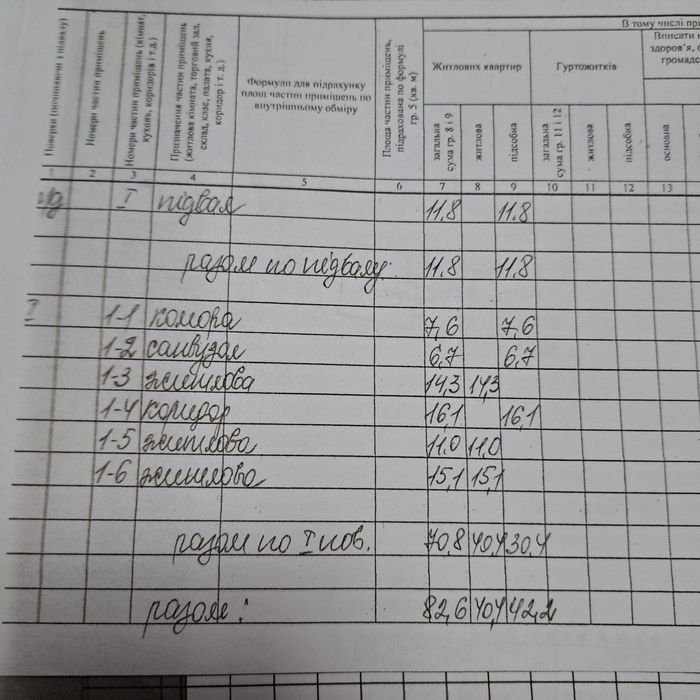 В тому числі
Житлових квартир
Гуртожитків
Вписати
здоров'я,
громадс
Поверхи (починаючи з підвалу)
Номери частин приміщень
Номери частин приміщень (кімнат,
кухонь, коридорів і т.д.)
Призначення частин приміщень
(житлова кімната, торговий зал,
склад, клас, палата, кухня,
коридор і т. д.)
Формули для підрахунку
площ частин приміщень по
внутрішньому обміру
Площа частин приміщень,
підрахована по формулі
гр. 5 (кв. м)
загальна
сума гр. 8 і 9
житлова
підсобна
загальна
сума гр. 11 і 12
житлова
підсобна
основна
1 2 3 4 5 6 7 8 9 10 11 12 13
п/д I підвал 11.8 11.8
разом по підвалу: 11.8 11.8
I 1-1 комора 7,6 7,6
1-2 санвузол 6,7 6,7
1-3 житлова 14,3 14,3
1-4 коридор 16,1 16,1
1-5 житлова 11.0 11,0
1-6 житлова 15,1 15,1
разом по I пов. 70,8 40,4 30,4
разом: 82,6 40,4 42,2